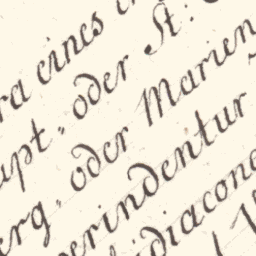 ra eines
upt- oder St:
erg, oder Marien
erindentur
idiacon